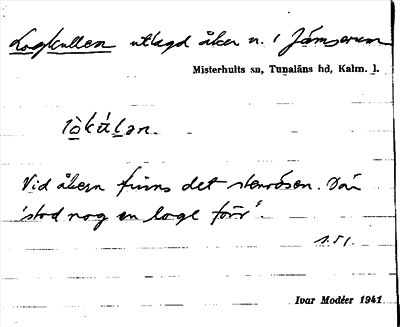 Logkullen utlagd åker n. i Jämserum
Misterhults sn, Tunaläns hd, Kalm. l.
lòkúlan.
Vid åkern finns det stenrösen. Där
'stod nog en loge förr'.
s. 51.
Ivar Modéer 1941